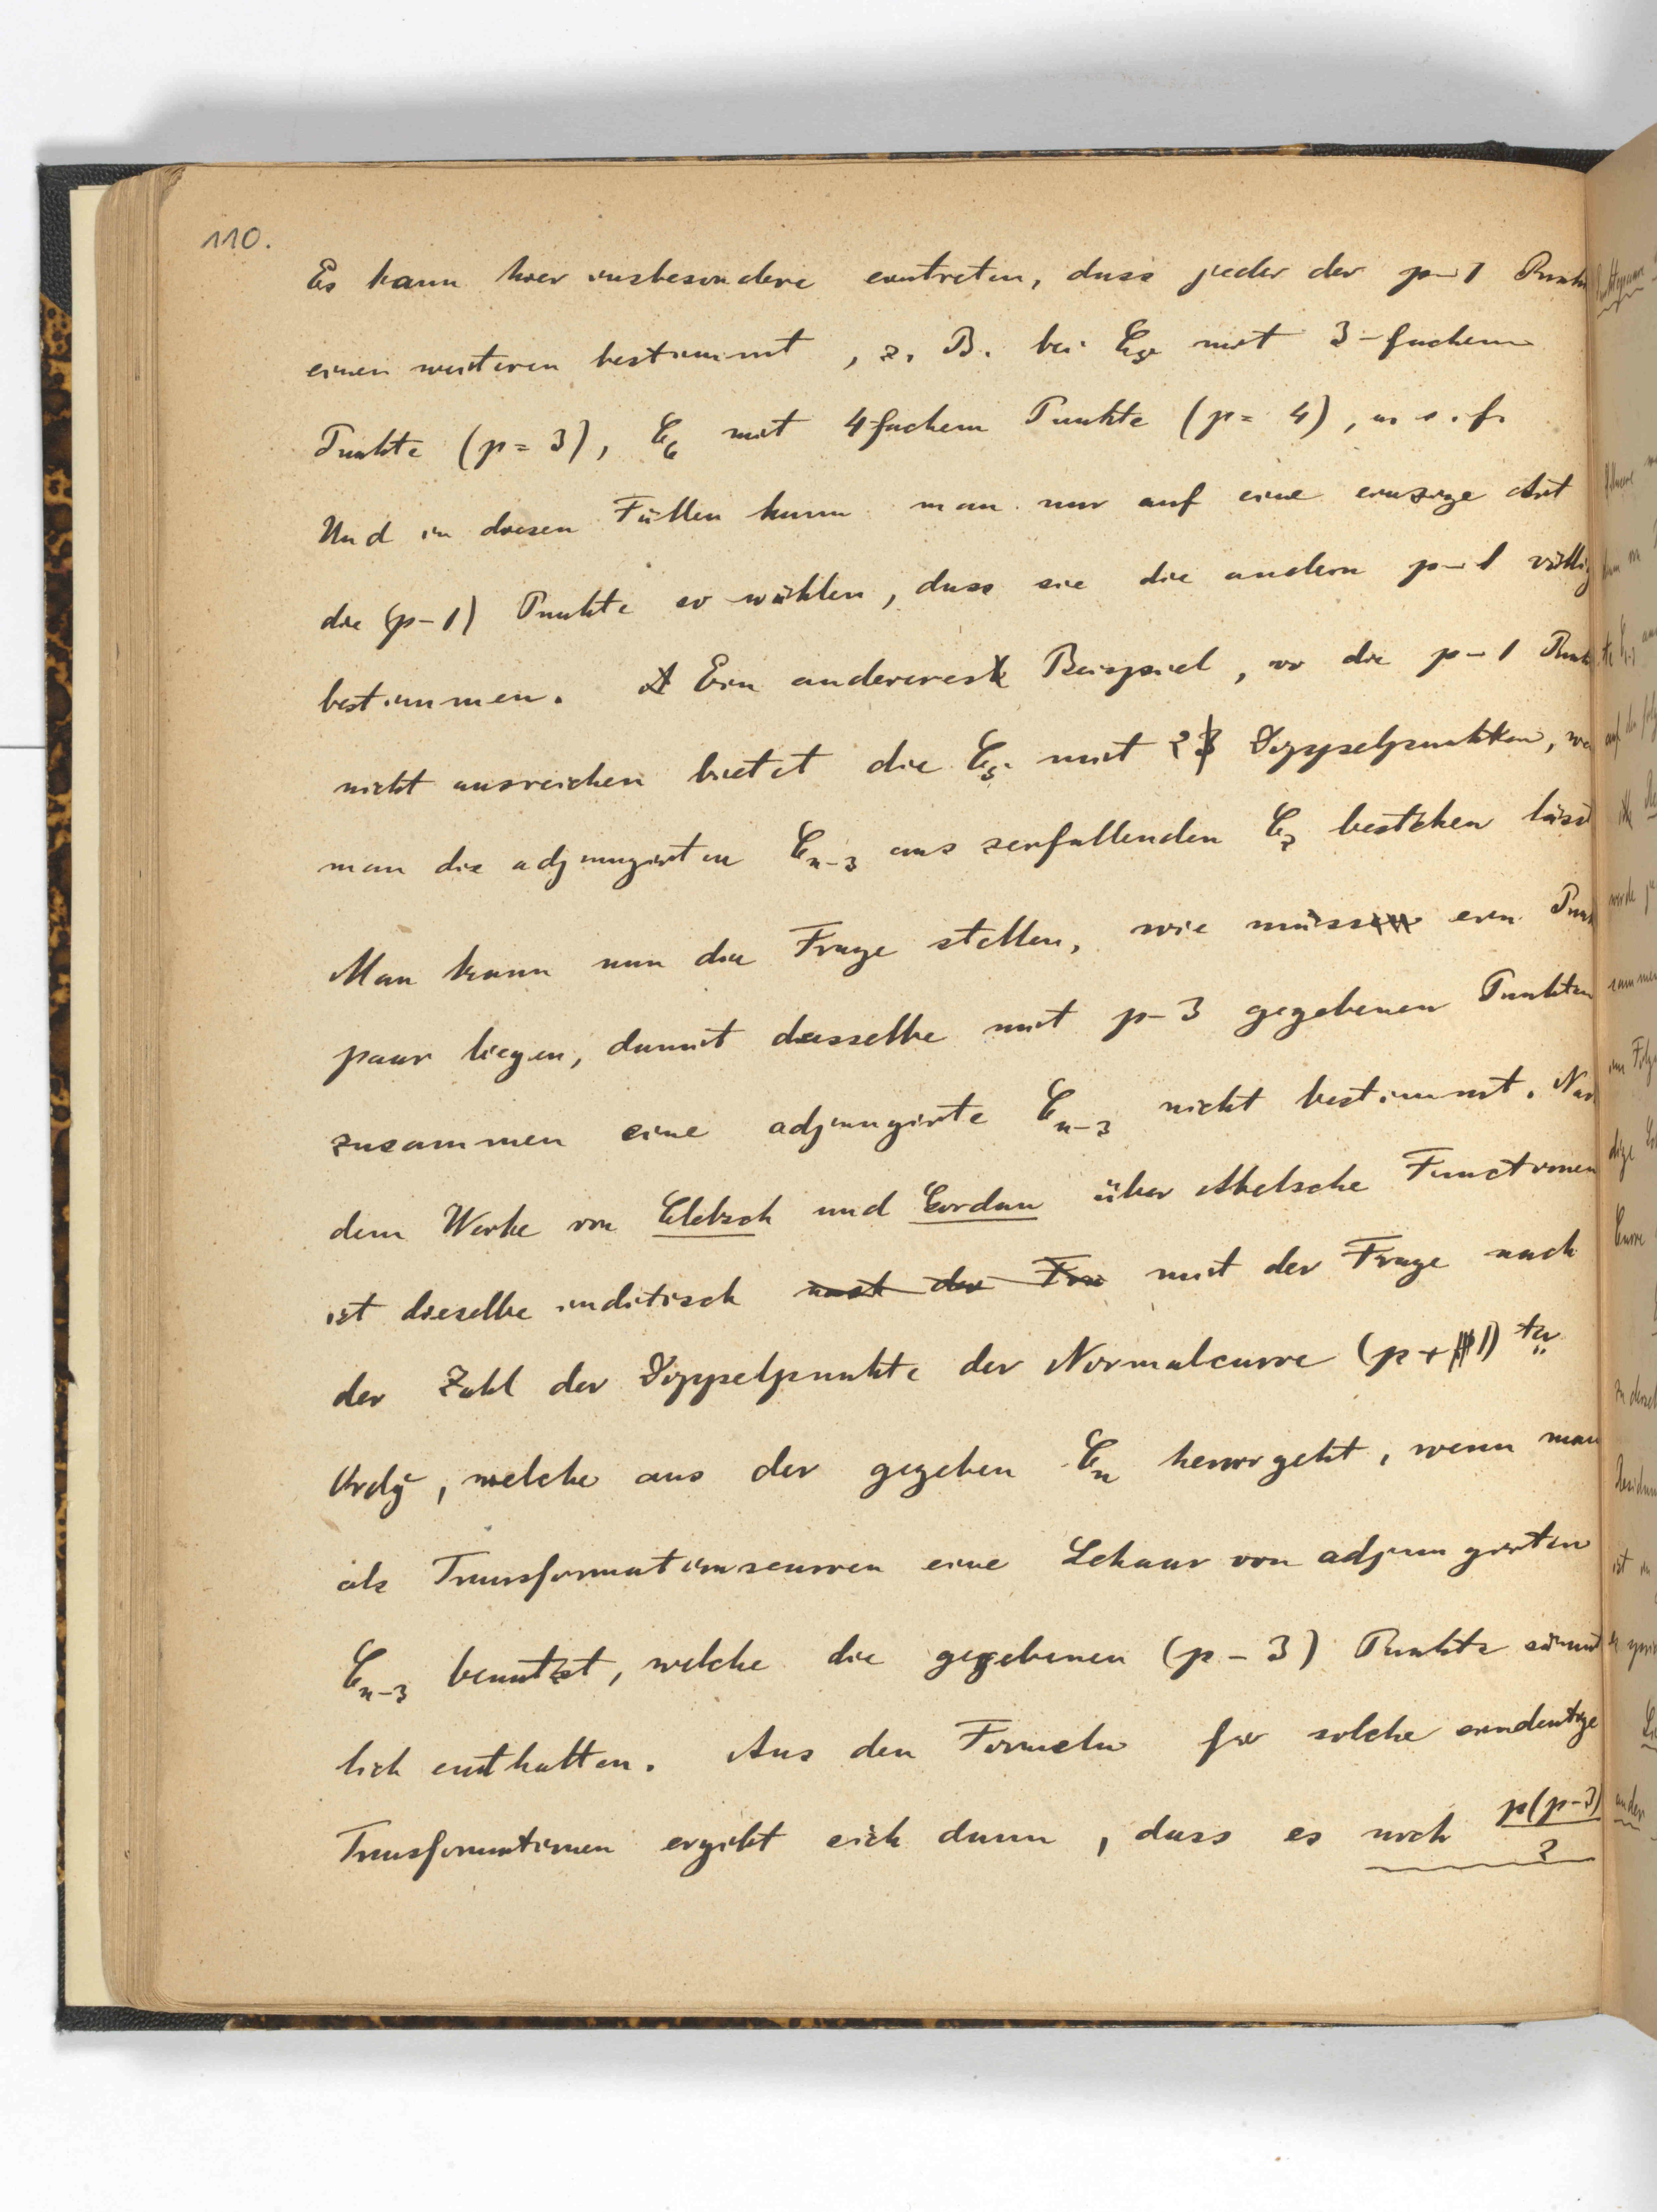 110.
Es kann hier insbesondere eintreten, dass jeder der p-1 Punkte
einen weiteren bestimmt, z. B. bei C₅ mit 3-fachem
Punkte (p = 3), C₆ mit 4fachem Punkte (p = 4), u. s. f.
Und in diesen Fällen kann man nur auf eine einzige Art
die (p-1) Punkte so wählen, dass sie die andern p-1 völlig
bestimmen. Ein anderes Beispiel, wo die p-1 Punkte
nicht ausreichen bietet die C₅ mit 2 Doppelpunkten, wo
man die adjungirten Cₙ₋₃ aus zerfallenden C₂ bestehen lässt
Man kann nun die Frage stellen, wie muss ein Punkt
paar liegen, damit dasselbe mit p-3 gegebenen Punkten
zusammen eine adjungirte Cₙ₋₃ nicht bestimmt. Nach
dem Werke von Clebsch und Gordan über Abelsche Functionen
ist dieselbe inditisch mit der Frage nach
der Zahl der Doppelpunkte der Normalcurve (p+1)ter
Ordg, welche aus der gegeben Cₙ hervorgeht, wenn man
als Transformationscurven eine Schaar von adjungirten
Cₙ₋₃ benutzt, welche die gegebenen (p-3) Punkte sämmt
lich enthalten. Aus den Formeln für solche eindeutige
Transformationen ergibt sich dann, dass es noch p(p-3)/2